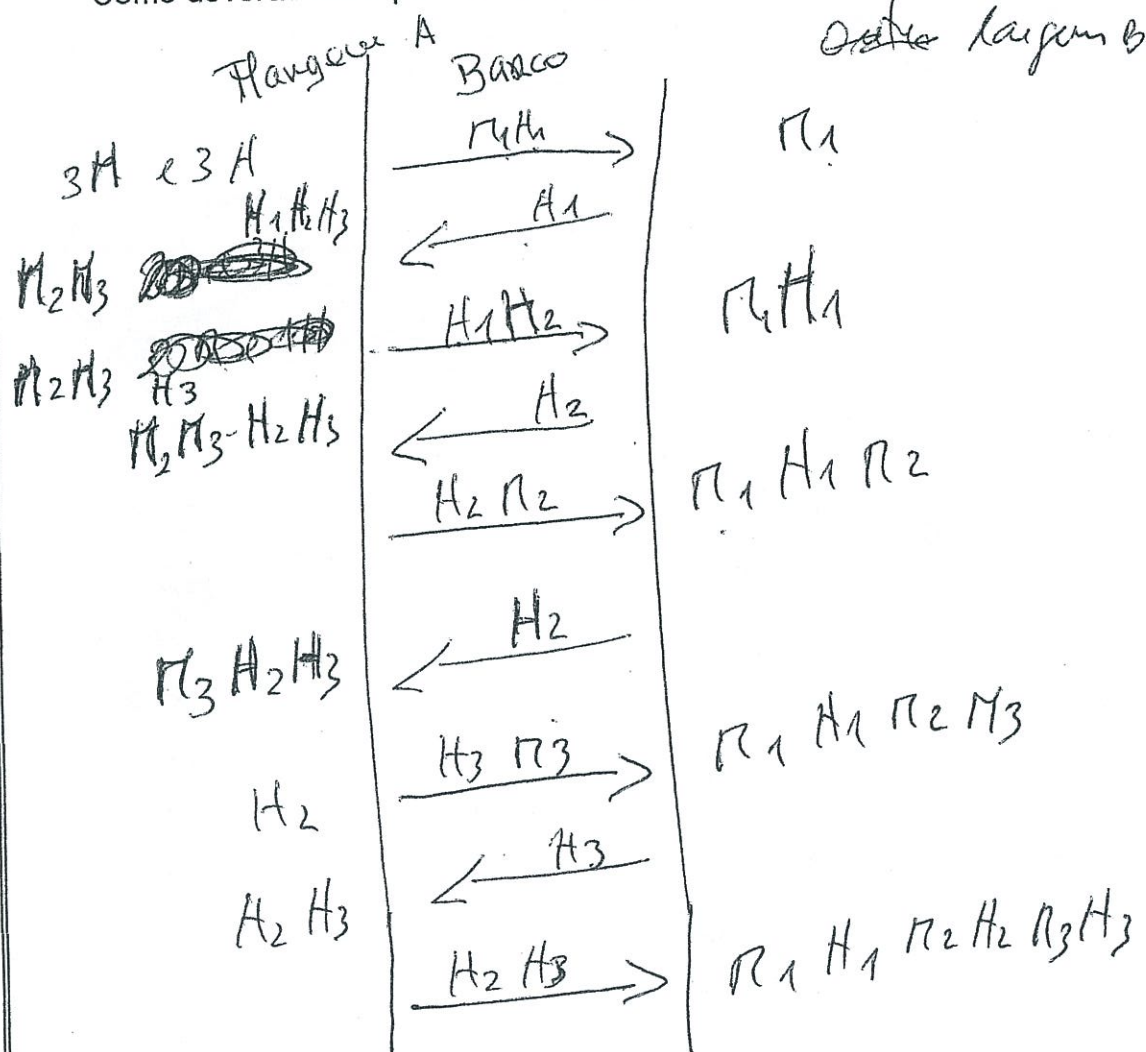 Margem A
Barco
Margem B
3H e 3M
M1H1
M1
H1H2H3
H1
M2M3
H1H2
M1H1
M2M3 H3
H2
M2M3-H2H3
H2 M2
M1 H1 M2
H2
M3 H2H3
H3 M3
M1 H1 M2 M3
H2
H3
H2 H3
H2 H3
M1 H1 M2 H2 M3 H3